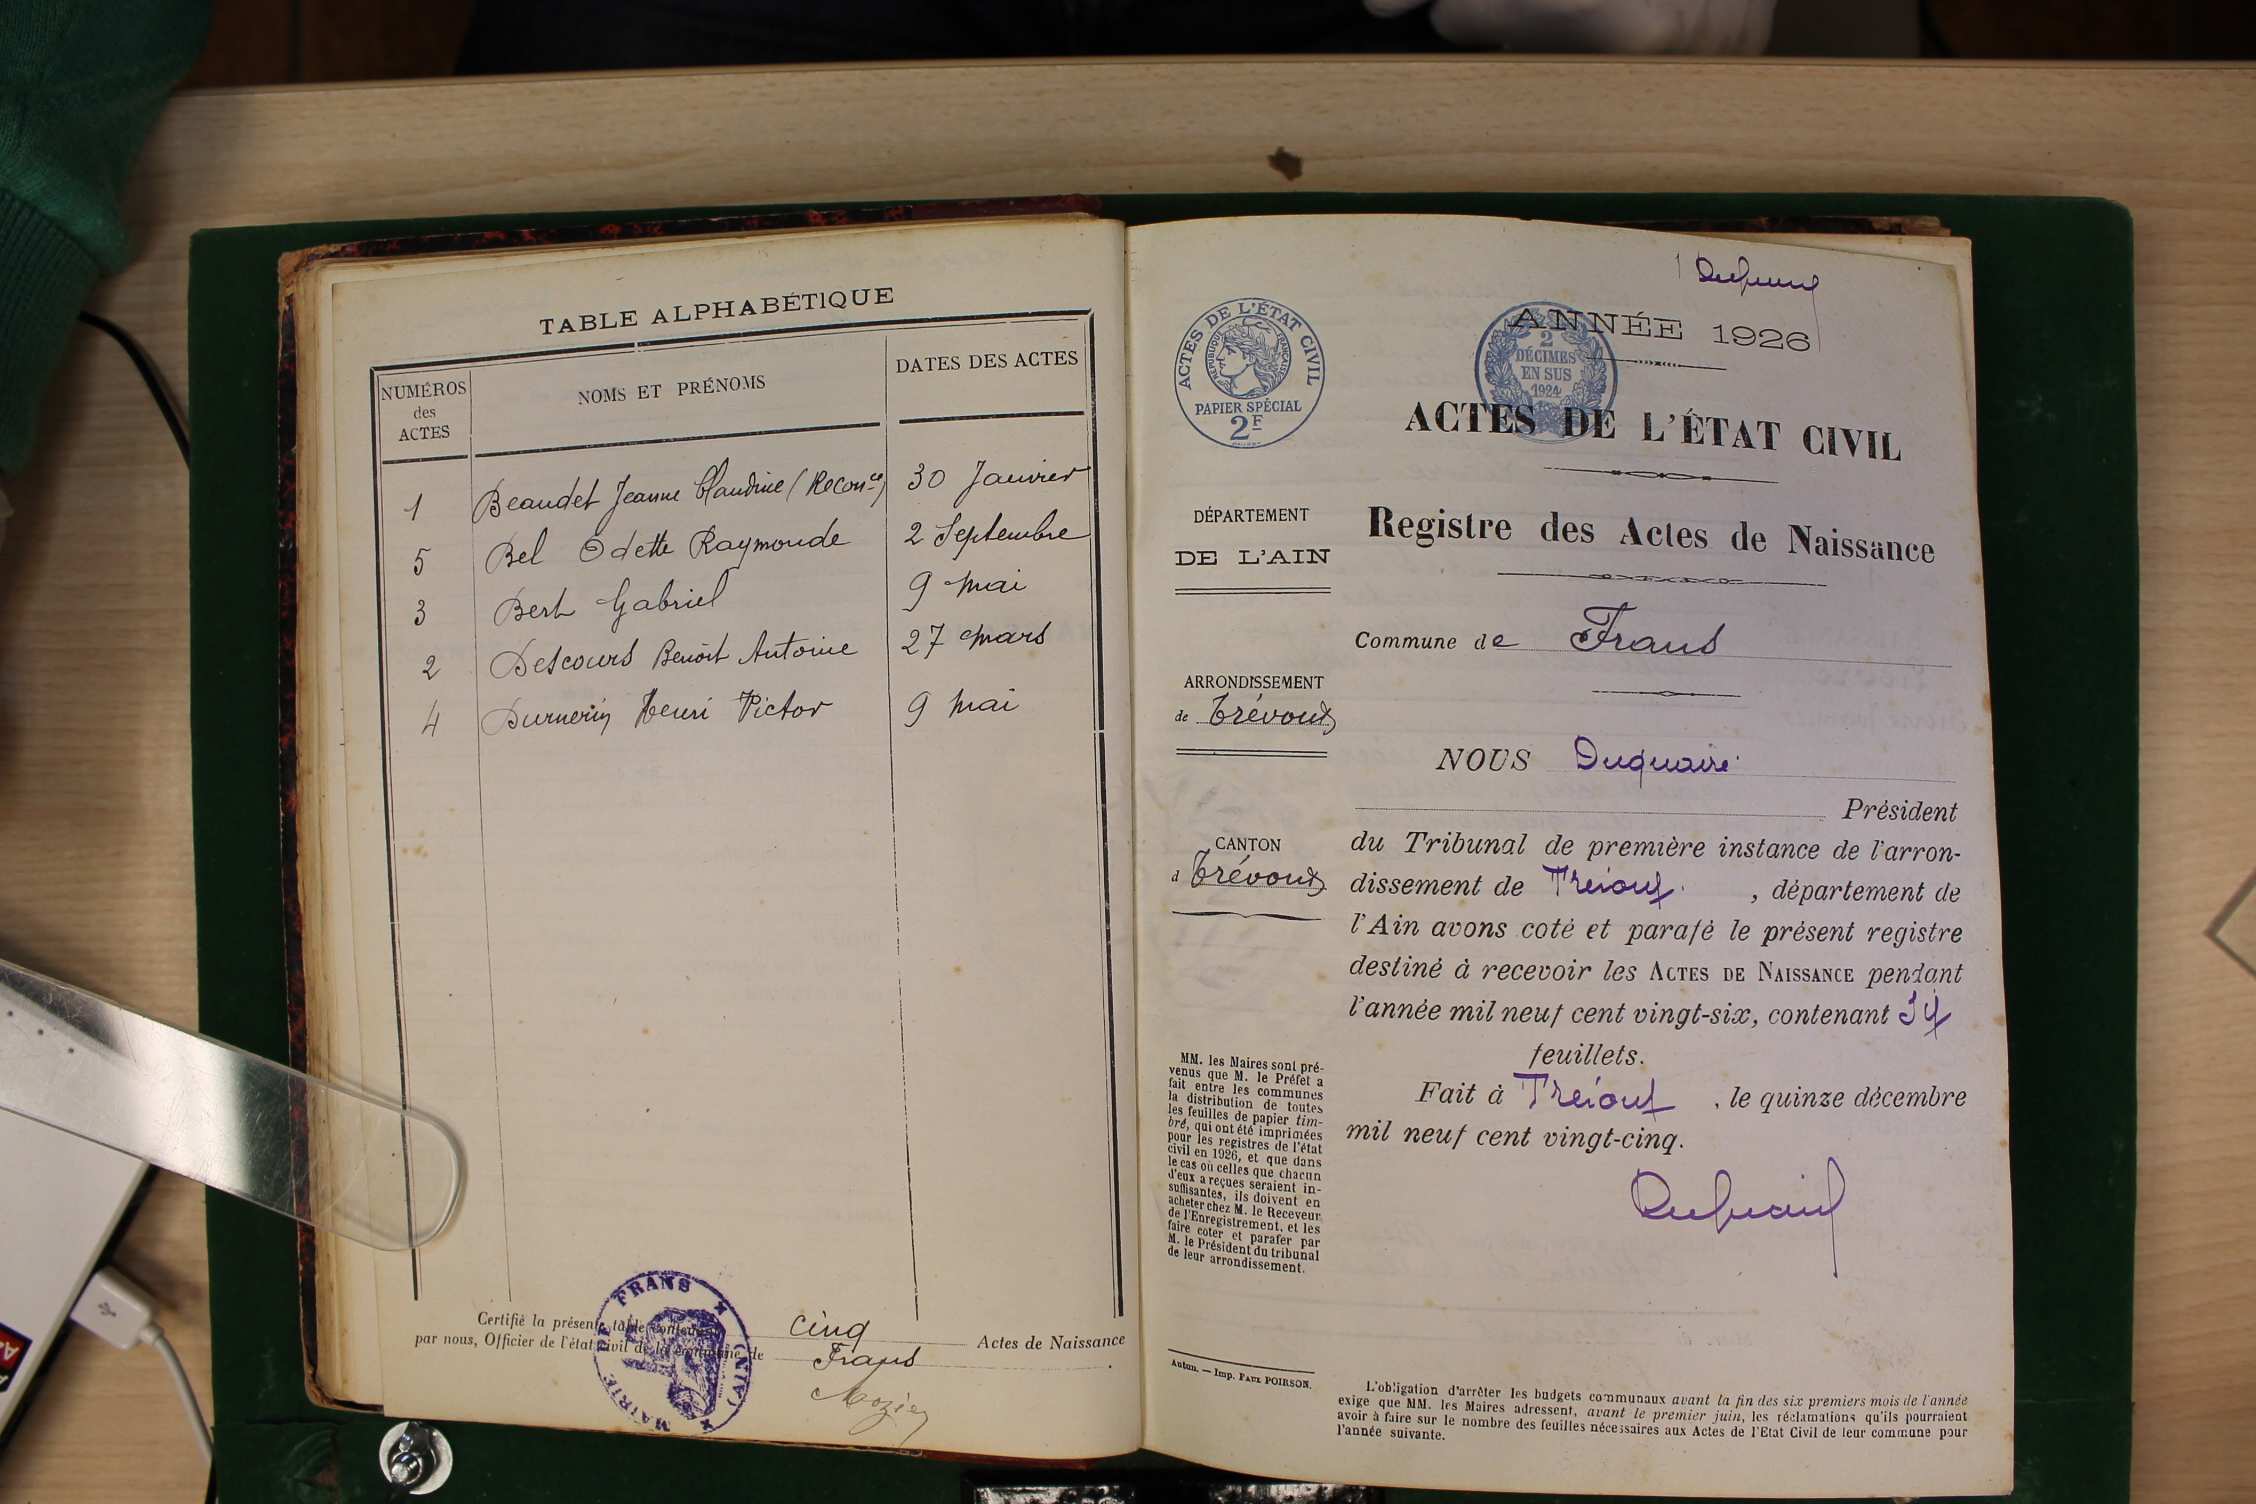 TABLE ALPHABÉTIQUE
NUMÉROS des ACTES NOMS ET PRÉNOMS DATES DES ACTES
1 Beaudet Jeanne Claudine (Reconce) 30 Janvier
5 Bel Odette Raymonde 2 Septembre
3 Bert Gabriel 9 Mai
2 Descours Benoît Antoine 27 Mars
4 Durnerin Henri Victor 9 Mai
Certifié la présente table contenant cinq Actes de Naissance
par nous, Officier de l'état civil de la commune de Frans
MAIRIE DE FRANS (AIN)
ACTES DE L'ÉTAT CIVIL
RÉPUBLIQUE FRANÇAISE
PAPIER SPÉCIAL
2F
2
DÉCIMES
EN SUS
1924
ANNÉE 1926
ACTES DE L'ÉTAT CIVIL
Registre des Actes de Naissance
DÉPARTEMENT
DE L'AIN
Commune de Frans
ARRONDISSEMENT
de Trévoux
CANTON
d Trévoux
NOUS Duquaire
Président
du Tribunal de première instance de l'arron-
dissement de Trévoux , département de
l'Ain avons coté et parafé le présent registre
destiné à recevoir les ACTES DE NAISSANCE pendant
l'année mil neuf cent vingt-six, contenant
feuillets.
Fait à Trévoux , le quinze décembre
mil neuf cent vingt-cinq.
MM. les Maires sont pré-
venus que M. le Préfet a
fait entre les communes
la distribution de toutes
les feuilles de papier tim-
bré, qui ont été imprimées
pour les registres de l'état
civil en 1926, et que dans
le cas où celles que chacun
d'eux a reçues seraient in-
suffisantes, ils doivent en
acheter chez M. le Receveur
de l'Enregistrement, et les
faire coter et parafer par
M. le Président du tribunal
de leur arrondissement.
Autun. — Imp. PAUL POIRSON.
L'obligation d'arrêter les budgets communaux avant la fin des six premiers mois de l'année
exige que MM. les Maires adressent, avant le premier juin, les réclamations qu'ils pourraient
avoir à faire sur le nombre des feuilles nécessaires aux Actes de l'Etat Civil de leur commune pour
l'année suivante.